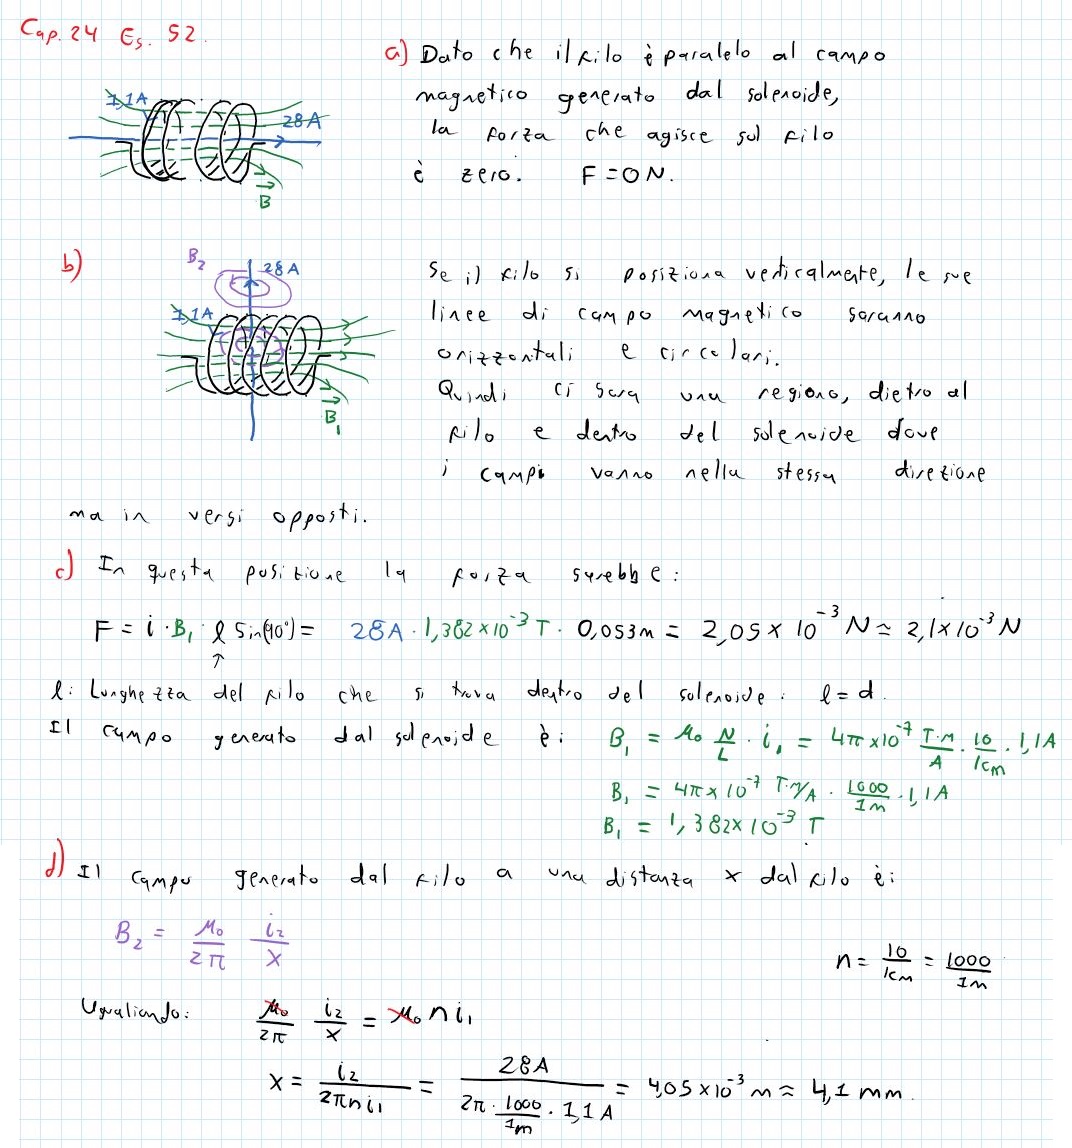 Cap. 24 Es. 52.
a) Dato che il filo è paralelo al campo
magnetico generato dal solenoide,
la forza che agisce sul filo
è zero. F = 0 N.
1,1A
28A
B
b)
B₂
28A
1,1A
B₁
Se il filo si posiziona verticalmente, le sue
linee di campo magnetico saranno
orizzontali e circolari.
Quindi ci sara una regione, dietro al
filo e dentro del solenoide dove
i campi vanno nella stessa direzione
ma in versi opposti.
c) In questa posizione la forza sarebbe:
F = i · B₁ · l sin(90°) = 28A · 1,382×10⁻³ T · 0,053m = 2,05×10⁻³ N ≃ 2,1×10⁻³ N
↑
l: Lunghezza del filo che si trova dentro del solenoide: l = d.
Il campo generato dal solenoide è: B₁ = μ₀ N/L · i₁ = 4π×10⁻⁷ T·M/A · 10/1cm · 1,1A
B₁ = 4π×10⁻⁷ T·M/A · 1000/1m · 1,1A
B₁ = 1,382×10⁻³ T
d) Il campo generato dal filo a una distanza x dal filo è:
B₂ = μ₀/2π i₂/x
n = 10/1cm = 1000/1m
Ugualiando: μ₀/2π i₂/x = μ₀ n i₁
x = i₂/2πni₁ = 28A/(2π · 1000/1m · 1,1A) = 4,05×10⁻³ m ≈ 4,1 mm.